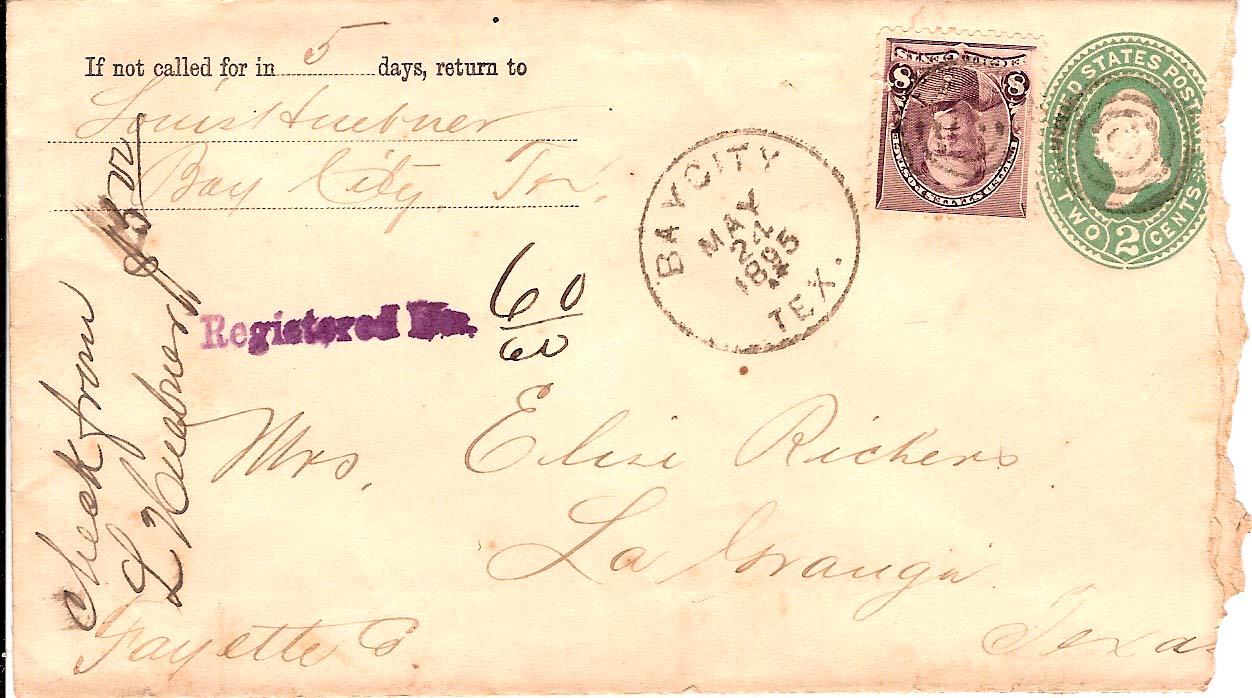 If not called for in 5 days, return to
Louis Huebner
Bay City, Tex,
UNITED STATES POSTAGE
TWO 2 CENTS
8 8
BAY CITY
MAY
24
1895
TEX.
Registered No. 60
60
Check from
L Huebner $5 00
Mrs, Elise Rickers
La Grange
Fayette Co. Texas